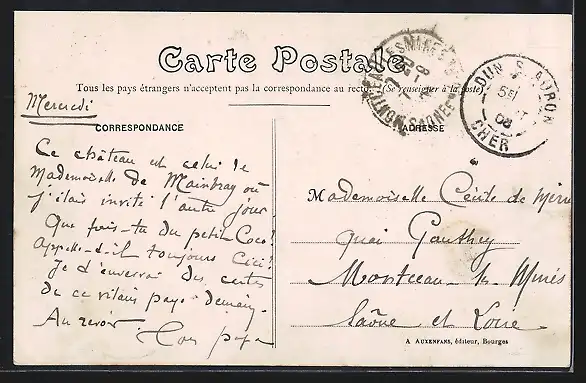 Carte Postale
Tous les pays étrangers n'acceptent pas la correspondance au recto. (Se renseigner à la poste)
Mercredi
CORRESPONDANCE
Ce château est celui de
Mademoiselle de Maintray où
j'étais invité l'autre jour
Que fais-tu du petit Coco?
Appelle-t-il toujours Cici?
Je t'enverrai des cartes
de ce vilain pays demain.
Au revoir
Ton papa
ADRESSE
Mademoiselle de
Quai Gauthey
Montceau-les-Mines
Saône et Loire
A AUXENFANS, éditeur, Bourges
MONTCEAU-LES-MINES
SAONE-ET-
DUN S. AURON
5E
08
CHER